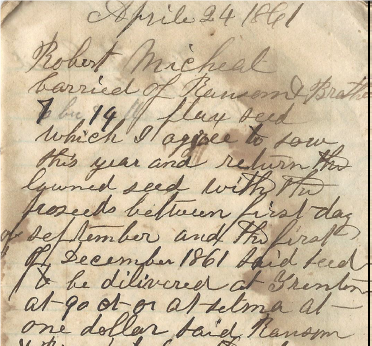 Aprile 24 1861
Robert Micheal
barried of Ransom & Brothe
7 14 flax seed
which I agree to sow
this year and return the
lowned seed with the
proseeds between first day
of september and the first
of December 1861 said seed
to be delivered at Trenton
at 90 ct or at selma at
one dollar said Ransom